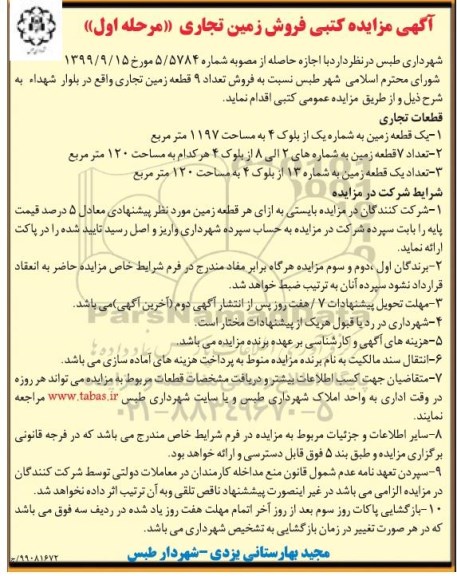 آگهی مزایده کتبی فروش زمین تجاری «مرحله اول»
شهرداری طبس درنظرداردبا اجازه حاصله از مصوبه شماره ۵/۵۷۸۴ مورخ ۱۳۹۹/۹/۱۵
شورای محترم اسلامی شهر طبس نسبت به فروش تعداد ۹ قطعه زمین تجاری واقع در بلوار شهداء به
شرح ذیل و از طریق مزایده عمومی کتبی اقدام نماید.
قطعات تجاری
۱-یک قطعه زمین به شماره یک از بلوک ۴ به مساحت ۱۱۹۷ متر مربع
۲-تعداد ۷قطعه زمین به شماره های ۲ الی ۸ از بلوک ۴ هرکدام به مساحت ۱۲۰ متر مربع
۳-تعداد یک قطعه زمین به شماره ۱۳ از بلوک ۴ به مساحت ۱۲۰ متر مربع
شرایط شرکت در مزایده
۱-شرکت کنندگان در مزایده بایستی به ازای هر قطعه زمین مورد نظر پیشنهادی معادل ۵ درصد قیمت
پایه را بابت سپرده شرکت در مزایده به حساب سپرده شهرداری واریز و اصل رسید تایید شده را در پاکت
ارائه نماید.
۲-برندگان اول ،دوم و سوم مزایده هرگاه برابر مفاد مندرج در فرم شرایط خاص مزایده حاضر به انعقاد
قرارداد نشود سپرده آنان به ترتیب ضبط خواهد شد.
۳-مهلت تحویل پیشنهادات ۷ /هفت روز پس از انتشار آگهی دوم (آخرین آگهی)می باشد.
۴-شهرداری در رد یا قبول هریک از پیشنهادات مختار است.
۵-هزینه های آگهی و کارشناسی بر عهده برنده مزایده می باشد.
۶-انتقال سند مالکیت به نام برنده مزایده منوط به پرداخت هزینه های آماده سازی می باشد.
۷-متقاضیان جهت کسب اطلاعات بیشتر و دریافت مشخصات قطعات مربوط به مزایده می تواند هر روزه
در وقت اداری به واحد املاک شهرداری طبس و یا سایت شهرداری طبس www.tabas.ir مراجعه
نمایند.
۸-سایر اطلاعات و جزئیات مربوط به مزایده در فرم شرایط خاص مندرج می باشد که در فرجه قانونی
برگزاری مزایده و طبق بند ۵ فوق قابل دسترسی و ارائه خواهد بود.
۹-سپردن تعهد نامه عدم شمول قانون منع مداخله کارمندان در معاملات دولتی توسط شرکت کنندگان
در مزایده الزامی می باشد در غیر اینصورت پیشنهاد ناقص تلقی وبه آن ترتیب اثر داده نخواهد شد.
۱۰-بازگشایی پاکات روز سوم بعد از روز آخر اتمام مهلت هفت روز یاد شده در ردیف سه فوق می باشد
که در هر صورت تغییر در زمان بازگشایی به تشخیص شهرداری می باشد.
مجید بهارستانی یزدی -شهردار طبس
۹۹۰۸۱۶۷۲/م
ParsNamadData
۰۲۱-۸۸۳۴۹۶۷۰-۵